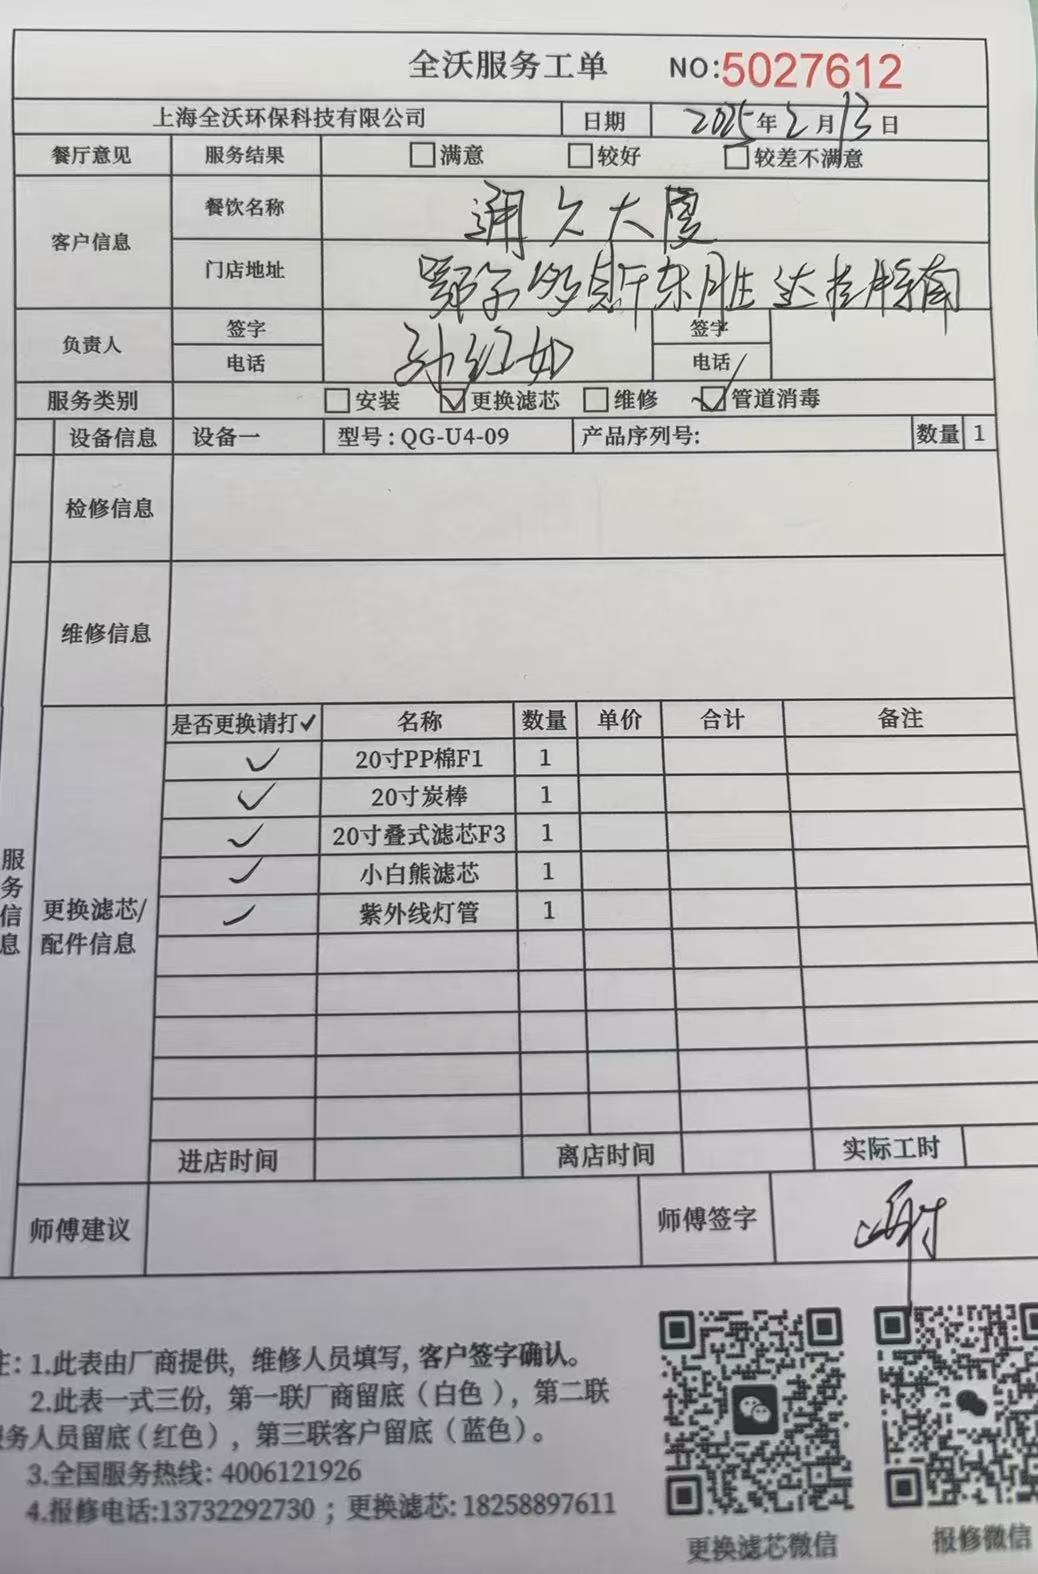 全沃服务工单 NO:5027612
上海全沃环保科技有限公司 日期 2025年2月13日
餐厅意见 服务结果 □满意 □较好 □较差不满意
客户信息 餐饮名称 通久大厦
门店地址 鄂尔多斯东胜达拉特南
负责人 签字 孙红如 签字
电话 电话
服务类别 □安装 ☑更换滤芯 □维修 ☑管道消毒
设备信息 设备一 型号:QG-U4-09 产品序列号: 数量 1
检修信息
维修信息
服务信息
更换滤芯/配件信息
是否更换请打✓ 名称 数量 单价 合计 备注
✓ 20寸PP棉F1 1
✓ 20寸炭棒 1
✓ 20寸叠式滤芯F3 1
✓ 小白熊滤芯 1
✓ 紫外线灯管 1
进店时间 离店时间 实际工时
师傅建议 师傅签字
注:1.此表由厂商提供, 维修人员填写, 客户签字确认。
2.此表一式三份, 第一联厂商留底(白色), 第二联
服务人员留底(红色), 第三联客户留底(蓝色)。
3.全国服务热线: 4006121926
4.报修电话:13732292730 ; 更换滤芯: 18258897611
更换滤芯微信 报修微信